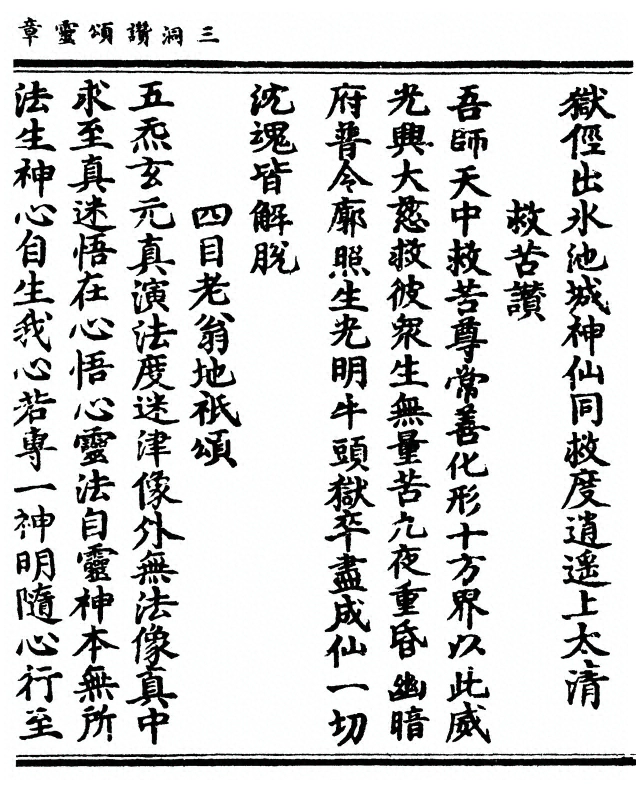 三洞讚頌靈章
獄俓出氷池城神仙同救度逍遥上太清
救苦讚
吾師天中救苦尊常善化形十方界以此威
光興大慈救彼衆生無量苦九夜重昏幽暗
府普令廓照生光明牛頭獄卒盡成仙一切
沈魂皆解脫
四目老翁地祇頌
五炁玄元真演法度迷津像外無法像真中
求至真迷悟在心悟心靈法自靈神本無所
法生神心自生我心若專一神明隨心行至